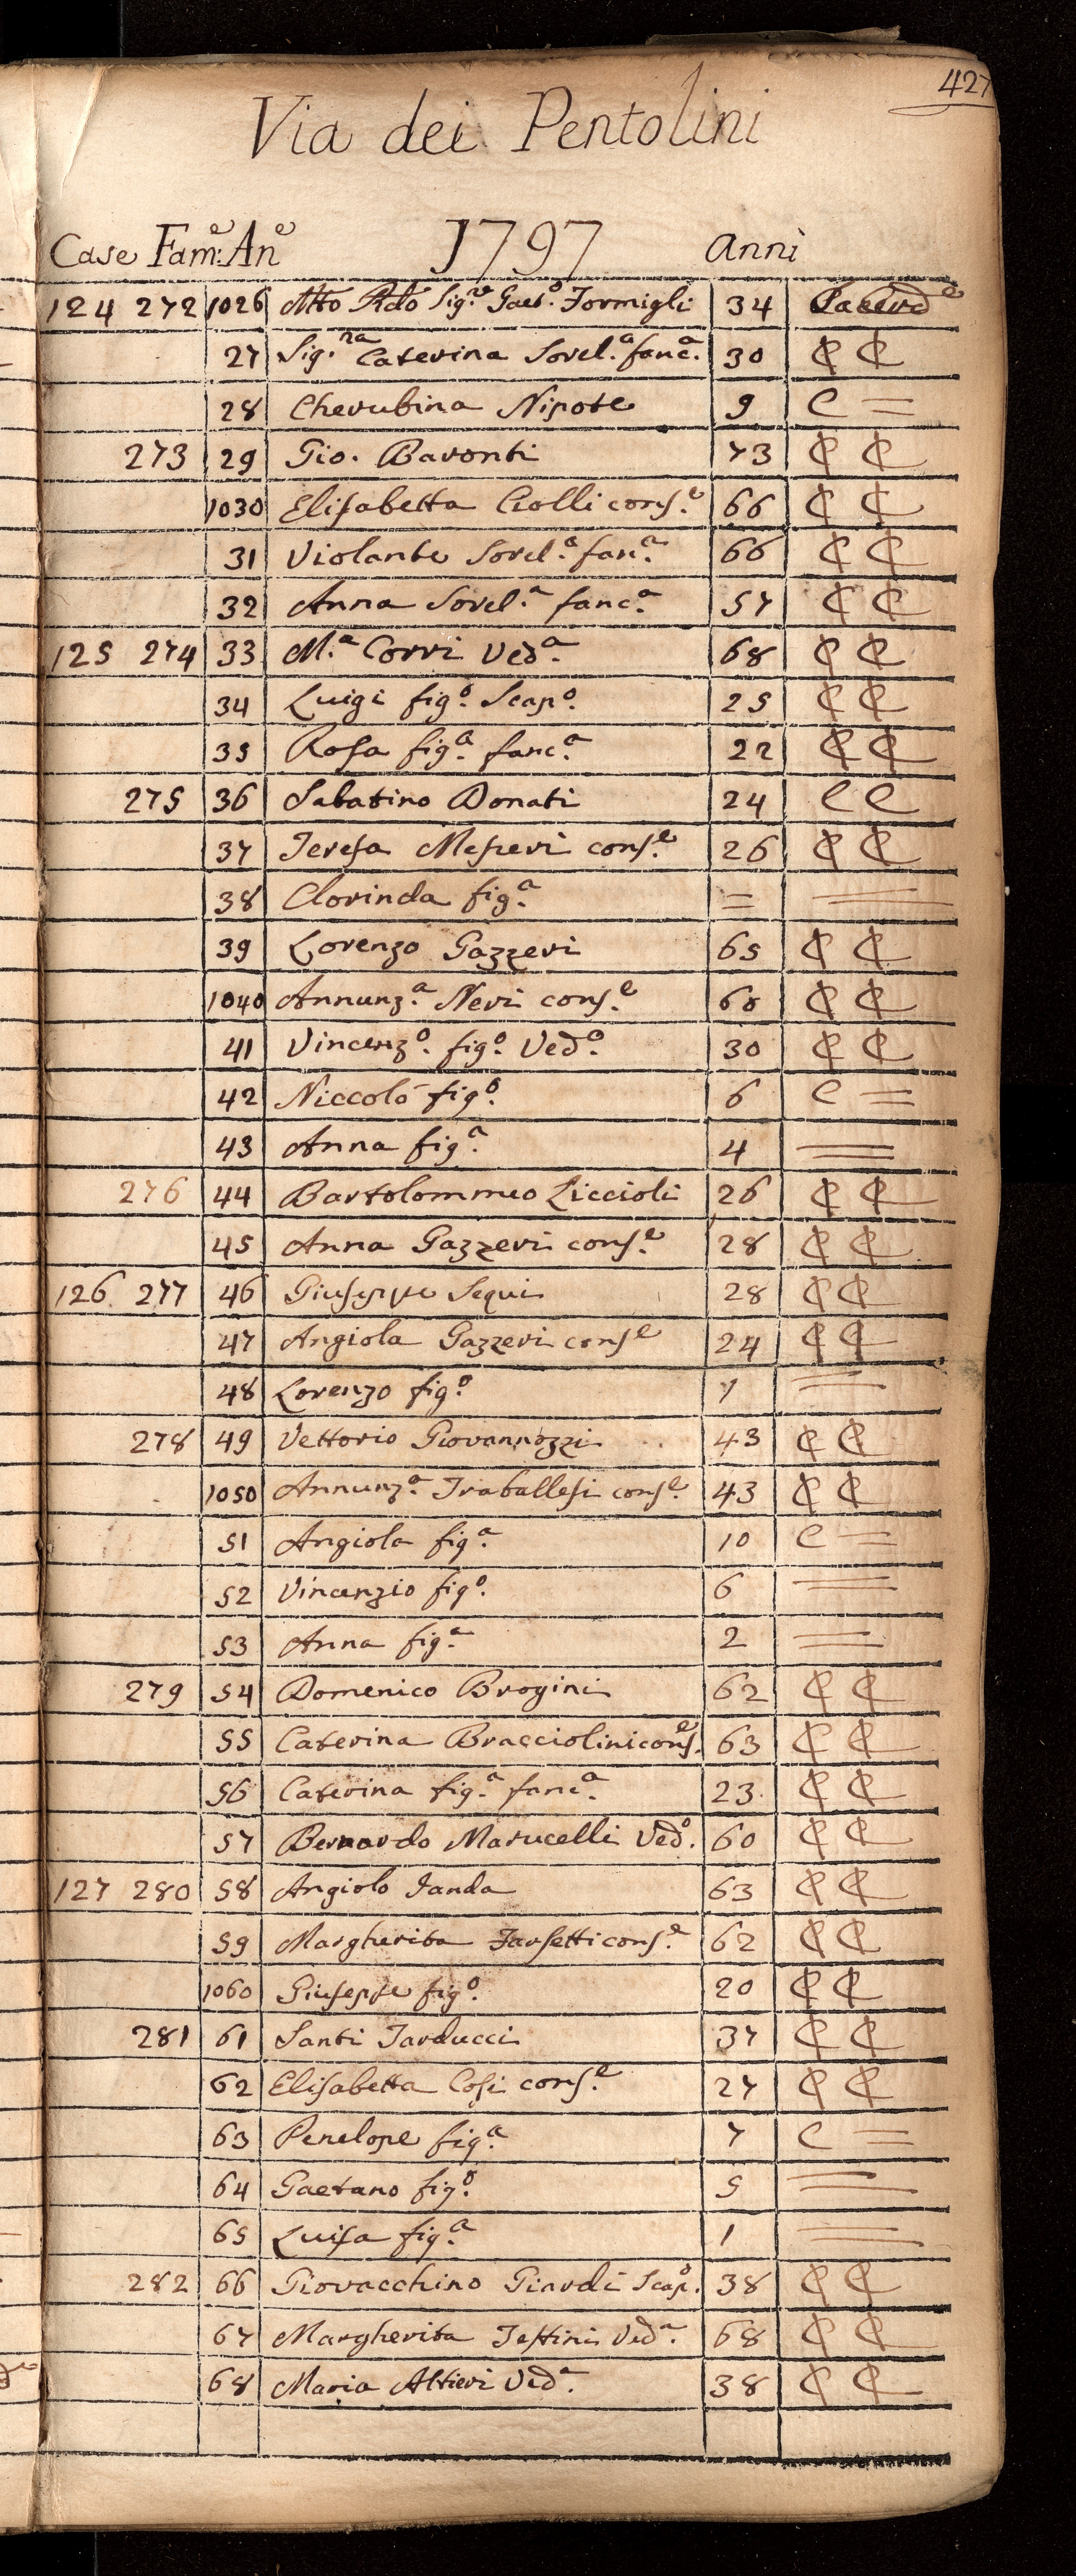 427
Via dei Pentolini
Case Fam:e An:e 1797 Anni
124 272 1026 Mto Rdo Sig.e Gaet.o Formigli 34 Sacerde
27 Sig.na Caterina Sorel.a fanc.a 30 ₵ ₵
28 Cherubina Nipote 9 C =
273 29 Gio. Baronti 73 ₵ ₵
1030 Elisabetta Ciolli cons.e 66 ₵ ₵
31 Violante Sorel.a fan.a 66 ₵ ₵
32 Anna Sorel.a fanc.a 57 ₵ ₵
125 274 33 M.a Corri Ved.a 68 ₵ ₵
34 Luigi fig.o Scap.o 25 ₵ ₵
35 Rosa fig.a fanc.a 22 ₵ ₵
275 36 Sabatino Donati 24 C C
37 Teresa Mesperi cons.e 26 ₵ ₵
38 Clorinda fig.a = =
39 Lorenzo Gazzeri 65 ₵ ₵
1040 Annunz.a Neri cons.e 60 ₵ ₵
41 Vincenz.o fig.o Ved.o 30 ₵ ₵
42 Niccolò fig.o 6 C =
43 Anna fig.a 4 =
276 44 Bartolommeo Liccioli 26 ₵ ₵
45 Anna Gazzeri cons.e 28 ₵ ₵
126 277 46 Giuseppe Sequi 28 ₵ ₵
47 Angiola Gazzeri conse 24 ₵ ₵
48 Lorenzo fig.o 1 =
278 49 Vettorio Giovannozzi 43 ₵ ₵
1050 Annunz.a Traballesi cons.e 43 ₵ ₵
51 Angiola fig.a 10 C =
52 Vincenzio fig.o 6 =
53 Anna fig.a 2 =
279 54 Domenico Brogini 62 ₵ ₵
55 Caterina Bracciolini cons.e 63 ₵ ₵
56 Caterina fig.a fanc.a 23 ₵ ₵
57 Bernardo Marucelli Ved.o 60 ₵ ₵
127 280 58 Angiolo Fanda 63 ₵ ₵
59 Margherita Farsetti cons.e 62 ₵ ₵
1060 Giuseppe fig.o 20 ₵ ₵
281 61 Santi Tarducci 37 ₵ ₵
62 Elisabetta Cosi cons.e 27 ₵ ₵
63 Penelope fig.a 7 C =
64 Gaetano fig.o 5 =
65 Luisa fig.a 1 =
282 66 Giovacchino Giardi Scap.o 38 ₵ ₵
67 Margherita Testini Ved.a 68 ₵ ₵
68 Maria Altieri Ved.a 38 ₵ ₵